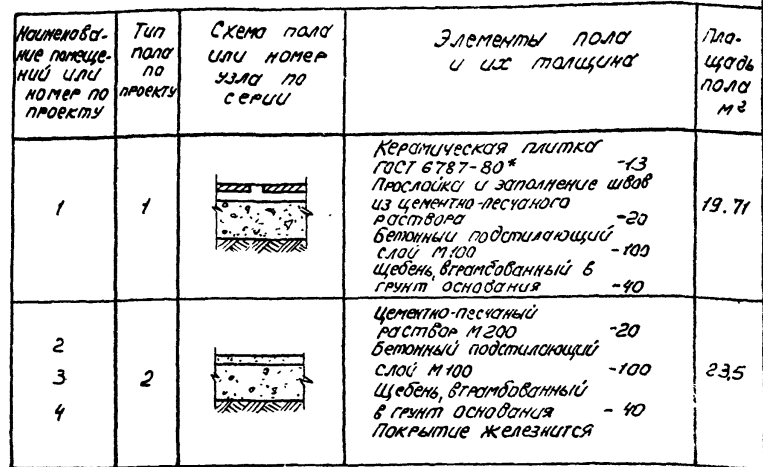 Наименова-
ние помеще-
ний или
номер по
проекту
Тип
пола
по
проекту
Схема пола
или номер
узла по
серии
Элементы пола
и их толщина
Пла-
щадь
пола
м2
1
1
Керамическая плитка
ГОСТ 6787-80* -13
Прослойка и заполнение швов
из цементно-песчаного
раствора -20
Бетонный подстилающий
слой М100 -100
щебень, втрамбованный в
грунт основания -40
19.71
2
3
4
2
Цементно-песчаный
раствор М200 -20
Бетонный подстилающий
слой М100 -100
Щебень, втрамбованный
в грунт основания - 40
Покрытие железнится
23,5